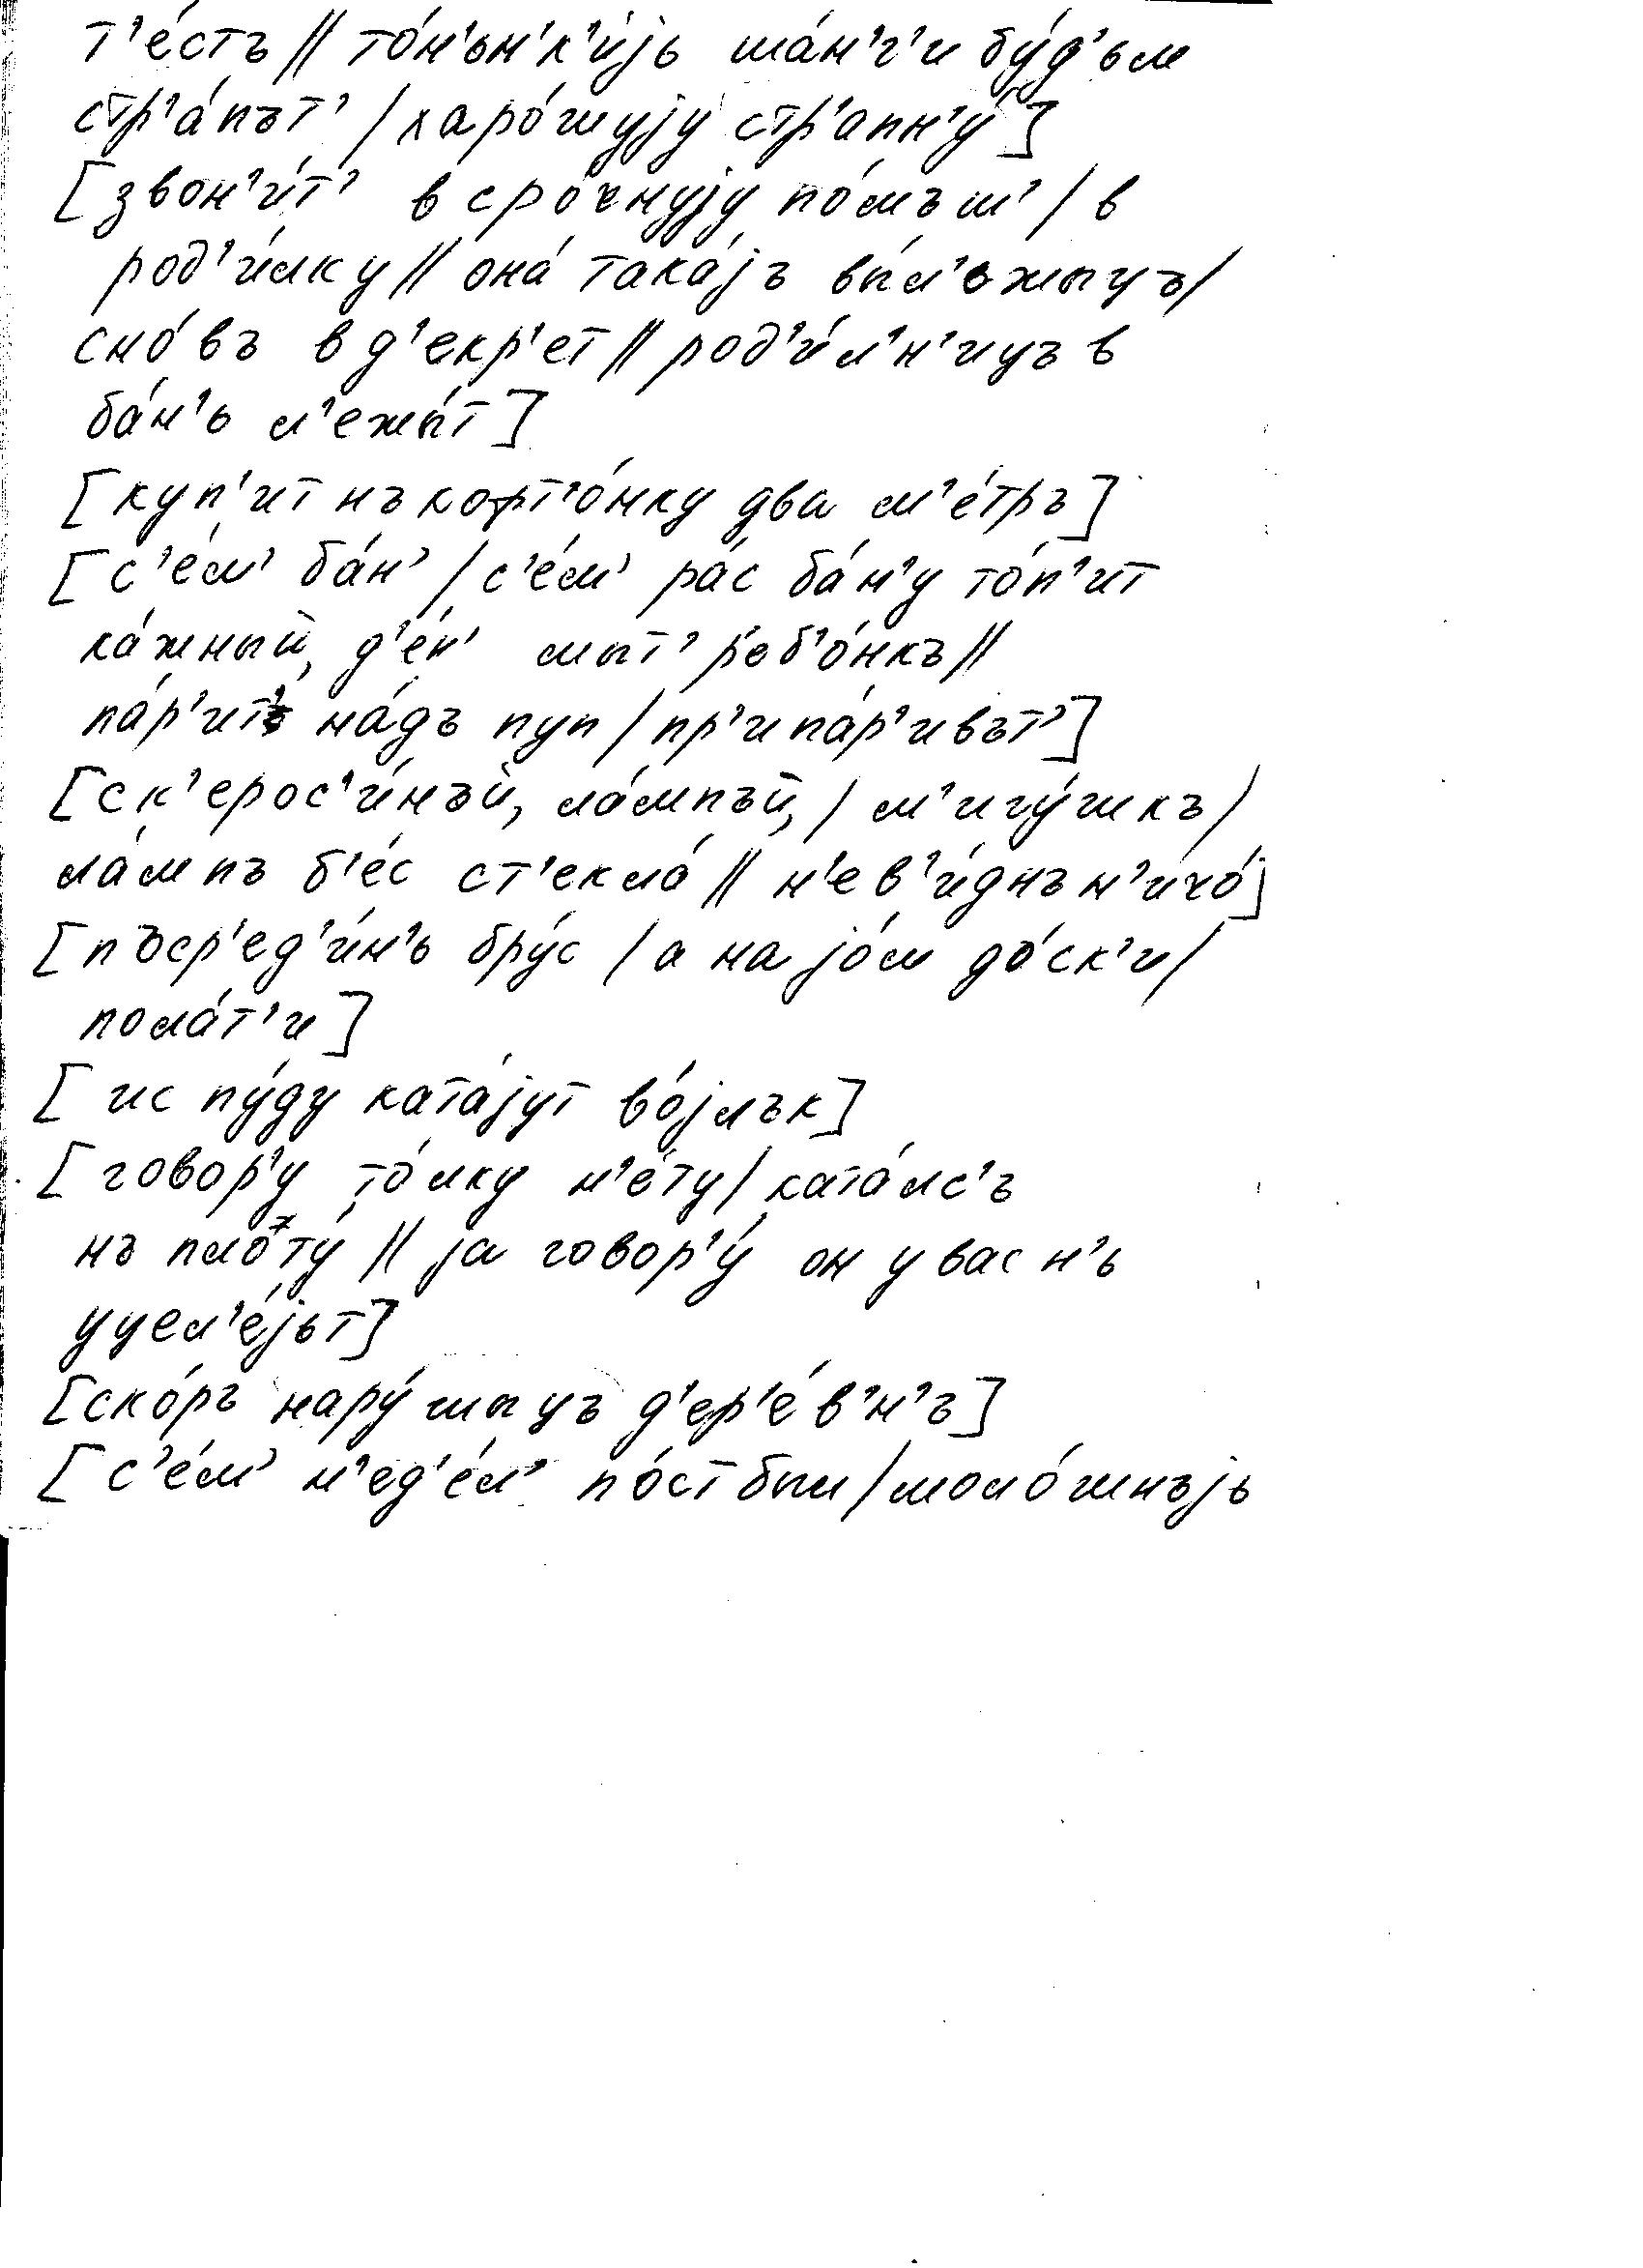 т'е́стъ // то́н'ьн'к'иjь ша́н'г'и бу́д'ьм
стр'а́път' / харо́шуjу стр'апн'у́]
[звон'и́т' в сро́чнуjу по́мъш' / в
род'и́лку // она́ така́jъ вы́л'ьжыцъ /
сно́въ в д'екр'ет // род'и́л'н'ицъ в
ба́н'ь л'ежы́т]
[куп'ит нъ корт'о́нку два м'е́тръ]
[с'е́м' ба́н' / с'е́м' ра́с ба́н'у то́п'ит
ка́жный д'е́н' мыт' р'еб'о́нкъ //
па́р'ит' на́дъ пуп / пр'ипа́р'ивът']
[ск'ерос'и́нъй, ла́мпъй, / м'игу́шкъ /
ла́мпъ б'е́с ст'екла́ // н'е в'и́днъ н'ичо́]
[пъср'ед'и́н'ь бру́с / а на jо́м до́ск'и /
пола́т'и]
[ис пу́ду ката́jут во́jлък]
[говор'у́ то́лку н'е́ту / ката́лс'ъ
нъ плоту́ // jа говор'у́ он у вас н'ь
уцел'е́jьт]
[ско́ръ нару́шыцъ д'ер'е́в'н'ъ]
[с'е́м' н'ед'е́л' по́ст был / моло́шнъjь